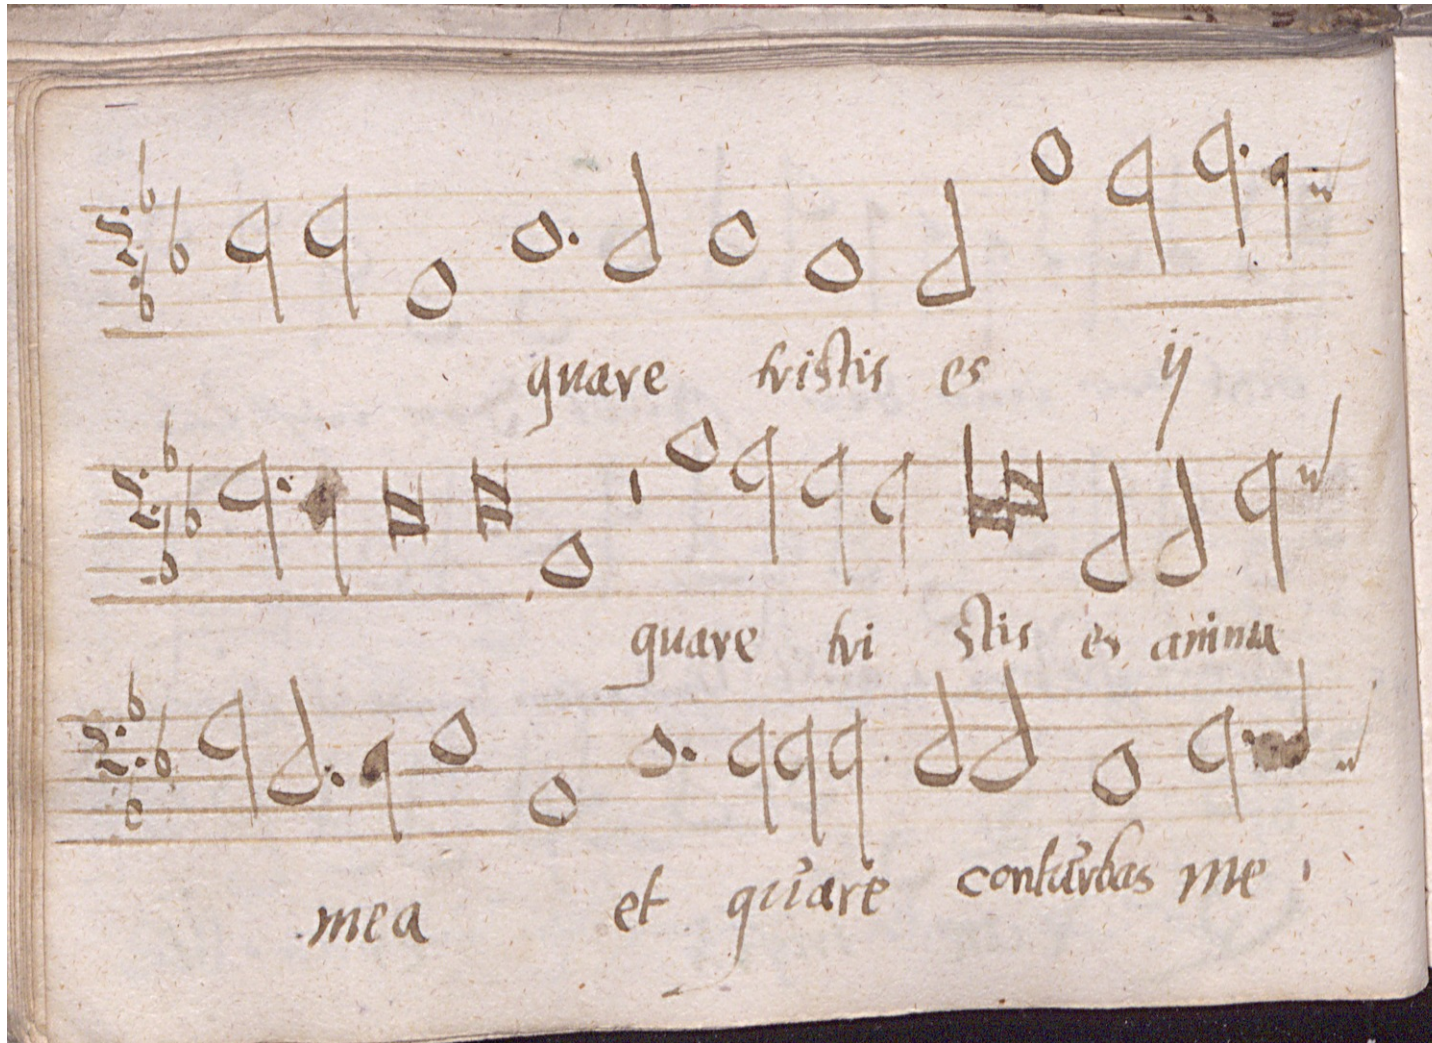 quare tristis es ij
quare tri stis es anima
mea et quare conturbas me